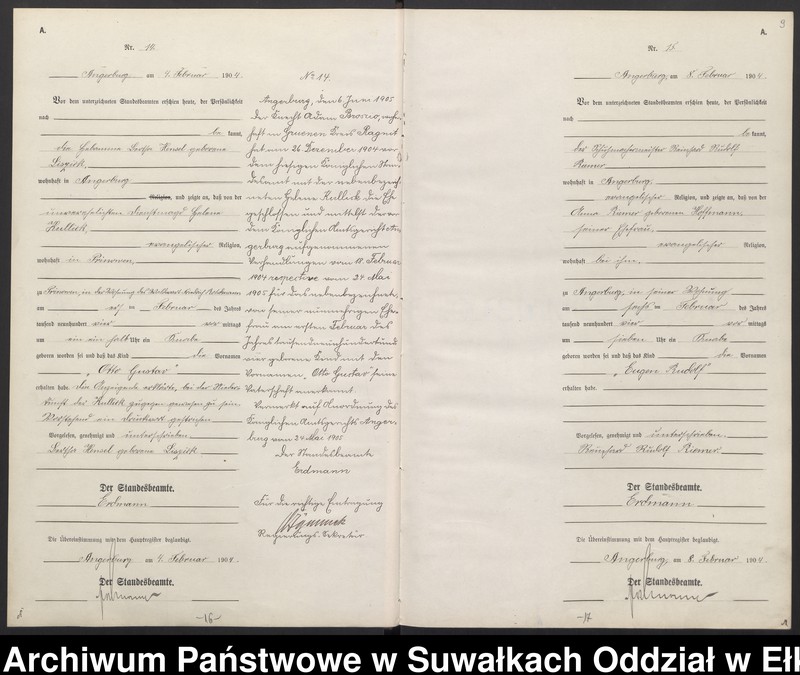 A.
Nr. 14.
Angerburg am 4. Februar 1904
Vor dem unterzeichneten Standesbeamten erschien heute, der Persönlichkeit
nach
be kannt,
die Hebamme Bertha Hensel geborene
wohnhaft in Angerburg
Religion, und zeigte an, daß von der
unverehelichten Dienstmagd Helene
Kulleck,
evangelischer Religion,
wohnhaft in
zu in der Wohnung des
am Februar des Jahres
tausend neunhundert vier vor mittags
um ein ein halb Uhr ein Knabe
geboren worden sei und daß das Kind die Vornamen
„Otto Gustav"
erhalten habe. Die Anzeigende erklärte, bei der Nieder-
kunft der Kulleck zugegen gewesen zu sein.
Vorstehend ein Druckwort gestrichen
Vorgelesen, genehmigt und unterschrieben
Bertha Hensel geborene
Der Standesbeamte.
Erdmann
Die Übereinstimmung mit dem Hauptregister beglaubigt.
Angerburg am 4. Februar 1904
Der Standesbeamte.
Erdmann
-16-
No 14.
Angerburg, den 6 Juni 1905
Der Knecht Adam wohn-
haft in Kreis Ragnit
hat am 26 Dezember 1904 vor
dem hiesigen Königlichen Stan-
desamt mit der nebenbezeich-
neten Helene Kulleck die Ehe
geschlossen und mittelst der vor
dem Königlichen Amtsgericht An-
gerburg aufgenommenen
Verhandlungen vom 18. Februar
1904 respective vom 24 Mai
1905 für das nebenbezeichnete,
von seiner nunmehrigen Ehe-
frau am ersten Februar des
Jahres tausendneunhundertund
vier geborene Kind mit den
Vornamen „Otto Gustav" seine
Vaterschaft anerkannt.
Vermerkt auf Anordnung des
Königlichen Amtsgerichts Anger-
burg vom 24 Mai 1905
Der Standesbeamte
Erdmann
Für die richtige Eintragung
Regierungs-Sekretär
9
A.
Nr. 15
Angerburg, am 8. Februar 1904
Vor dem unterzeichneten Standesbeamten erschien heute, der Persönlichkeit
nach
be kannt,
der Schuhmachermeister Reinhard Rudolf
Riemer
wohnhaft in Angerburg,
evangelischer Religion, und zeigte an, daß von der
Anna Riemer geborenen Hoffmann,
seiner Ehefrau,
evangelischer Religion,
wohnhaft bei ihm,
zu Angerburg, in seiner Wohnung
am Februar des Jahres
tausend neunhundert vier vor mittags
um sieben Uhr ein Knabe
geboren worden sei und daß das Kind die Vornamen
„Eugen Rudolf"
erhalten habe.
Vorgelesen, genehmigt und unterschrieben
Reinhard Rudolf Riemer
Der Standesbeamte.
Erdmann
Die Übereinstimmung mit dem Hauptregister beglaubigt.
Angerburg, am 8. Februar 1904
Der Standesbeamte.
Erdmann
-17
Archiwum Państwowe w Suwałkach Oddział w Ełk